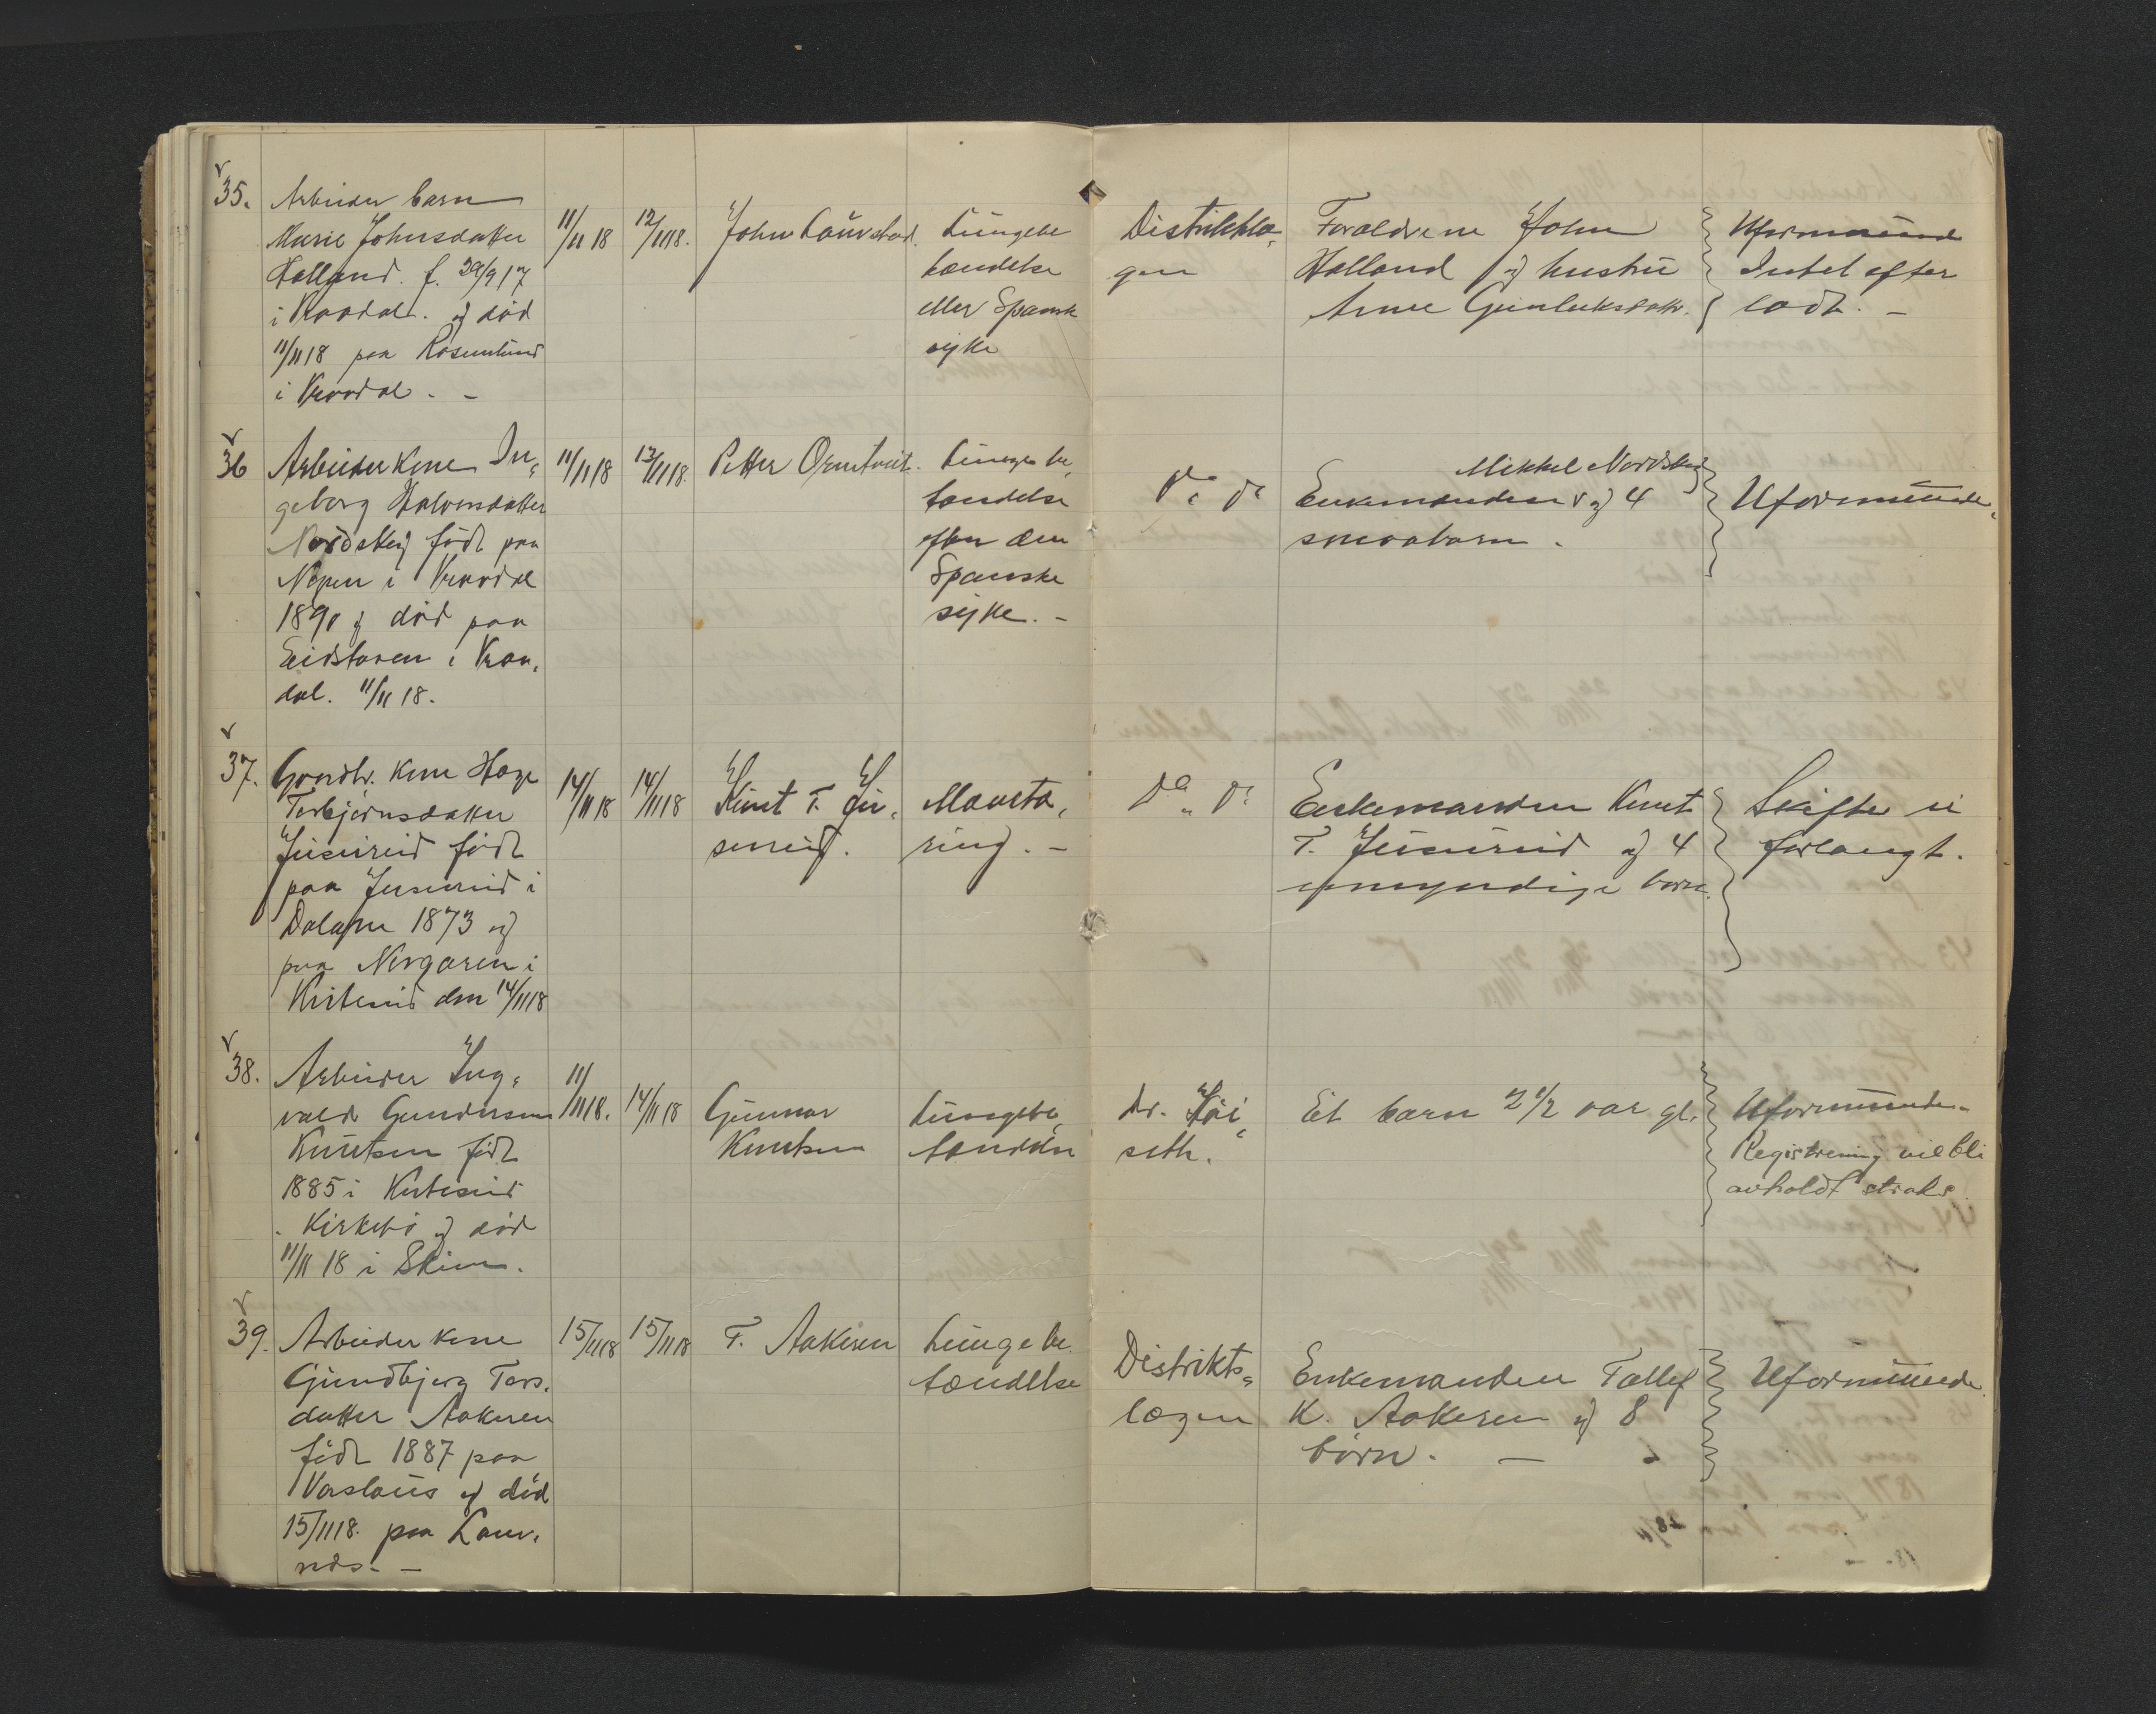 35.
Arbeider barn
Marie Johnsdatter
Halland. f. 29/9 17
i Kraadal. og död
11/11 18 paa Rosenlund
i Kraadal. -
11/11 18
12/11 18.
John Laurstad.
Lungebe
tændelse
eller Spansk
syke
Distriktslæ,
gen
Foraldrene John
Halland og hustru
Anne Gunleiksdatr.
Uformuende
Intet efter
ladt. -
36
Arbeider Kone In,
geborg Halvorsdatter
Nordskog födt paa
Nepen i Kraadal
1890 og död paa
Eidstaren i Kraa,
dal. 11/11 18.
11/11 18
13/11 18.
Petter Ormtveit.
Lungebe,
tændelse
efter den
Spanske
syke. -
Do Do
Mikkel Nordskog
Enkemanden og 4
smaabarn.
Uformuende.
37.
Gaardbr. Kone Hæge
Torbjørnsdatter
Jusureid födt
paa Jusureid i
Dalane 1873 og
paa Nergaren i
Kviteseid den 14/11 18
14/11 18
14/11 18
Knut T. Ju,
sureid.
Mavetæ,
ring. -
Do Do
Enkemanden Knut
T. Jusureid og 4
umyndige barn.
Skifte ei
forlangt.
38.
Arbeider Ing,
vald Gundersen
Knutsen födt
1885 i Kviteseid
Kirkebö og död
11/11 18 i Skien.
11/11 18.
14/11 18
Gunnar
Knutsen
Lungebe,
tændelse
Dr. Höi,
seth.
Et barn 2 1/2 aar gl.
Uformuende.
Registrering vil bli
avholdt straks.
39.
Arbeider kone
Gundbjørg Tors,
datter Aakeren
födt 1887 paa
Vraslaus og död
15/11 18. paa Laur,
nds. -
15/11 18
15/11 18
T. Aakeren
Lungebe
tændelse
Distrikts,
lægen
Enkemanden Tallef
K. Aakeren og 8
börn. -
Uformuende.